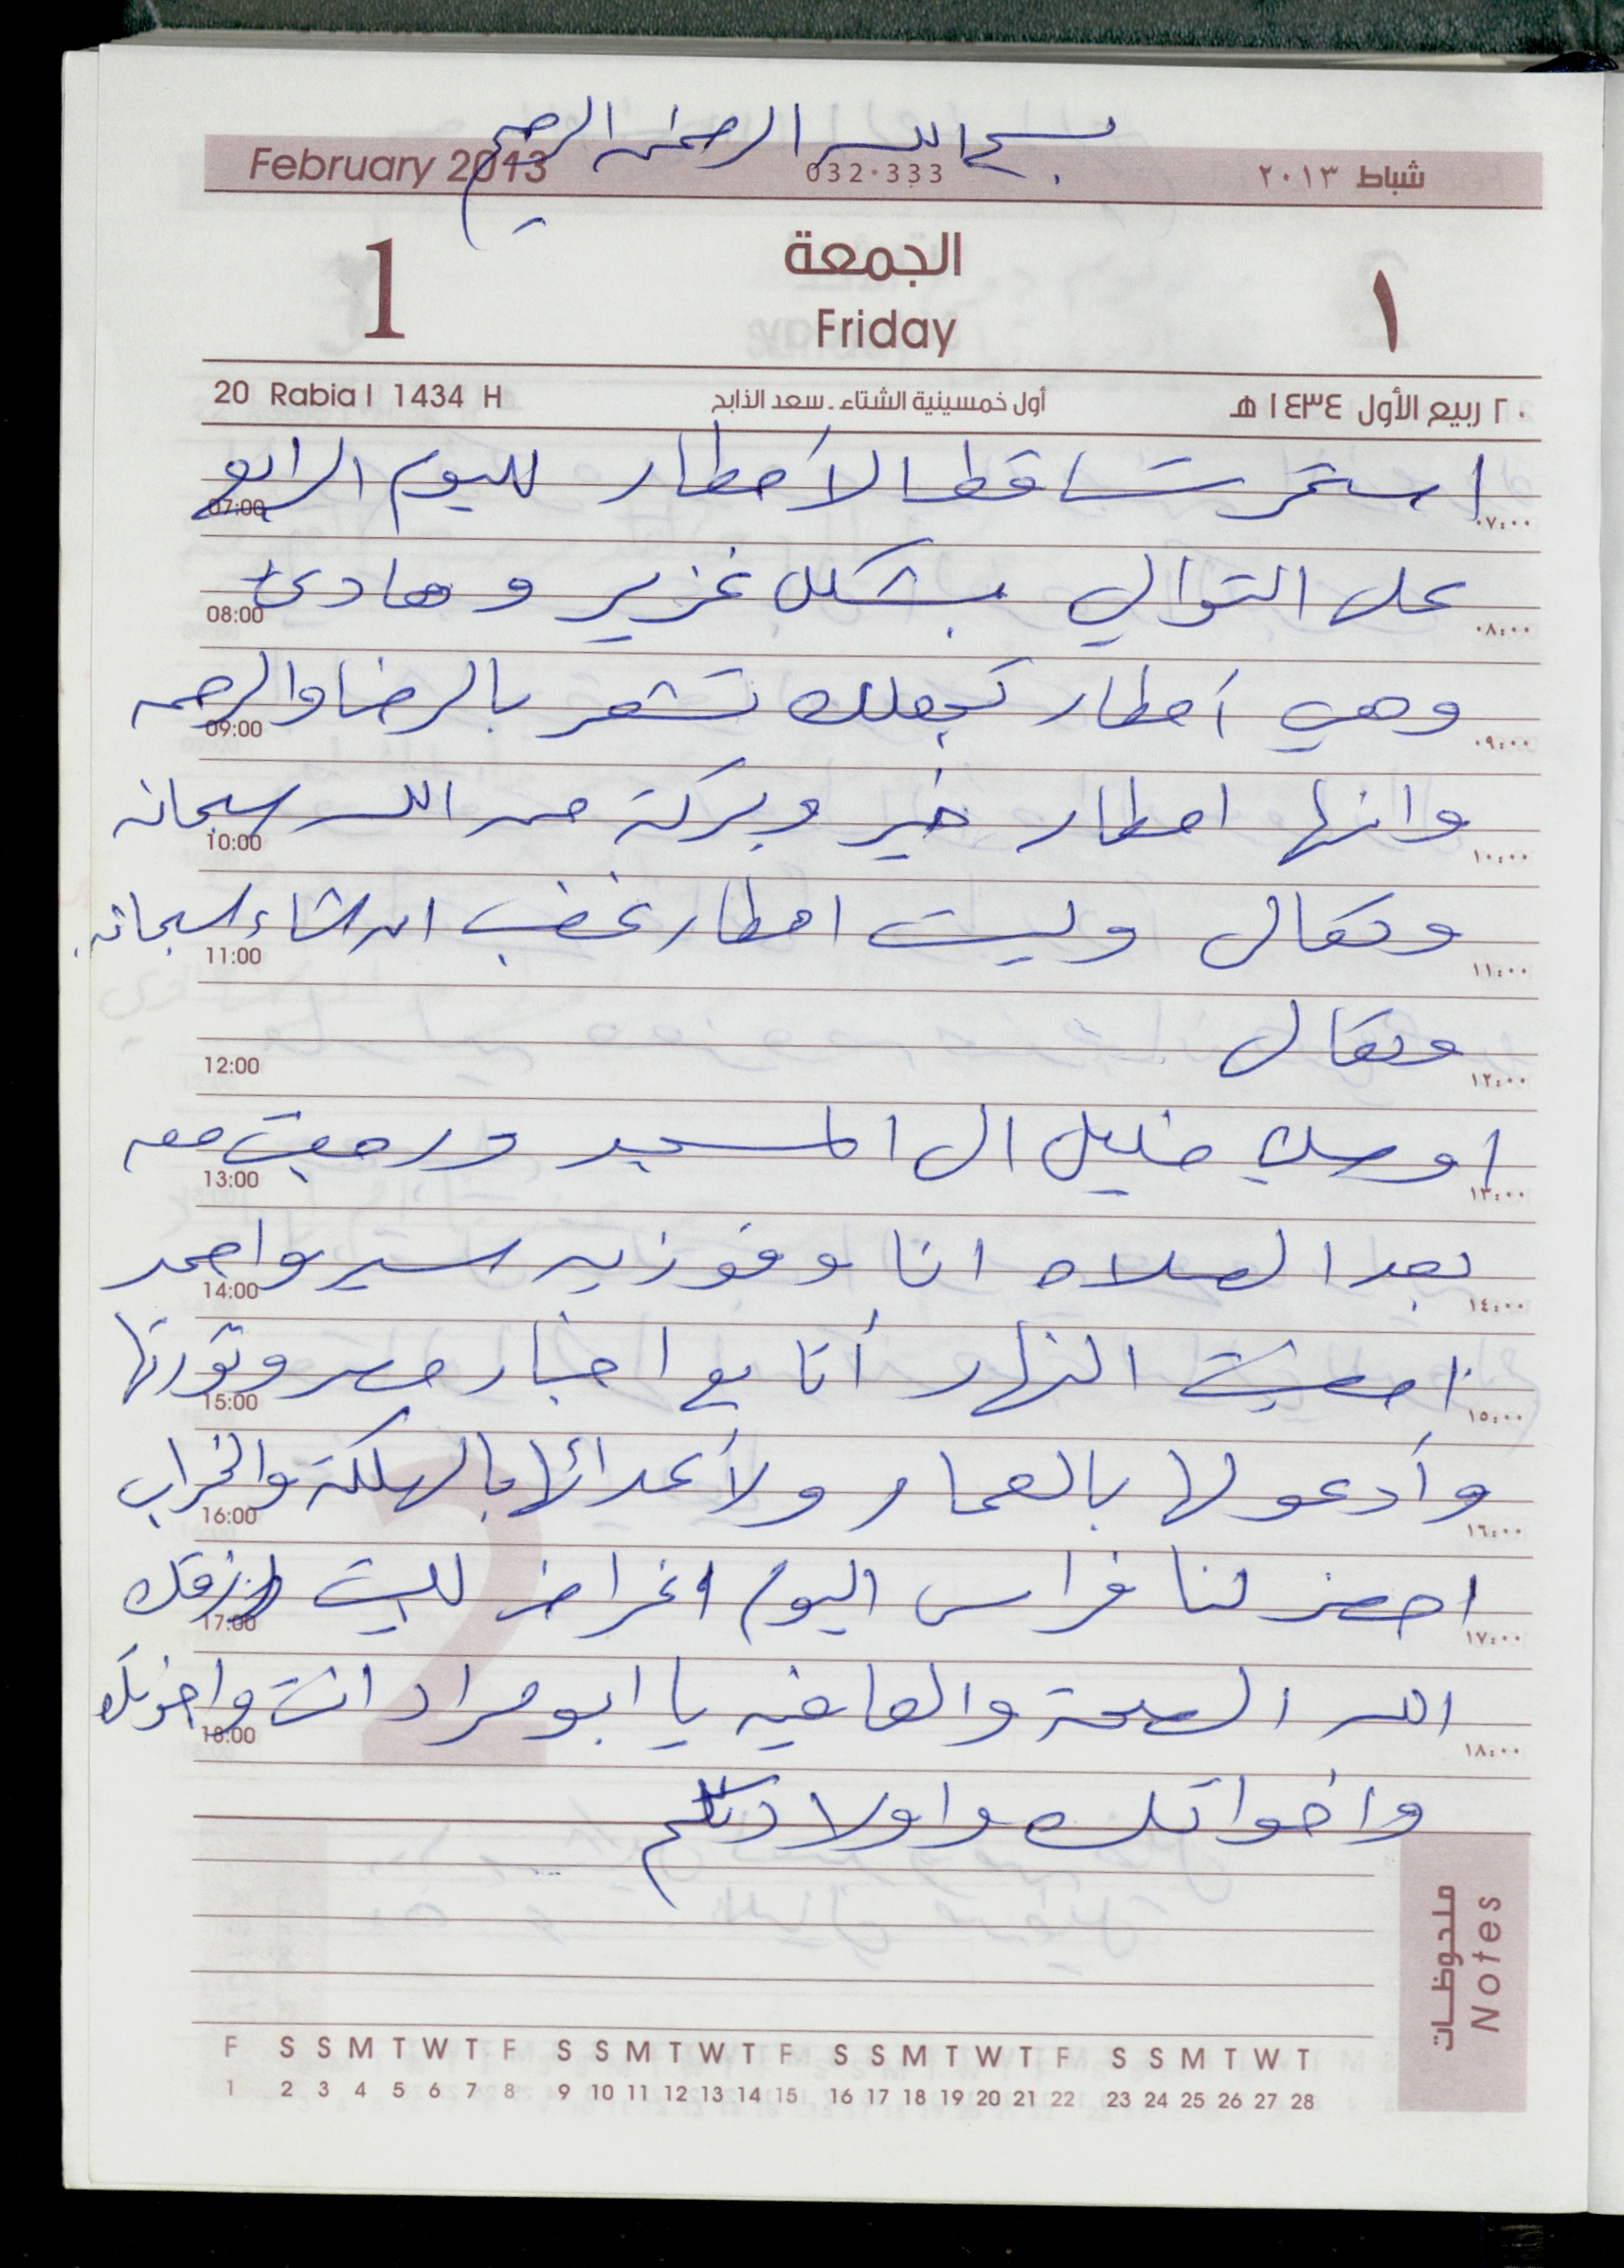 بسم الله الرحمن الرحيم
February 2013 032·333 شباط ٢٠١٣
1 الجمعة ١
Friday
20 Rabia I 1434 H أول خمسينية الشتاء ـ سعد الذابح ٢٠ ربيع الأول ١٤٣٤ هـ
استمر تساقط الأمطار لليوم الرابع
07:00 ٠٧:٠٠
على التوالي بشكل غزير وهادئ
08:00 ٠٨:٠٠
وهي أمطار تجعلك تشعر بالرضا والرحمه
09:00 ٠٩:٠٠
وانها امطار خير وبركة من الله سبحانه
10:00 ١٠:٠٠
وتعالى وليست امطار غضب ان شاء سبحانه
11:00 ١١:٠٠
وتعالى
12:00 ١٢:٠٠
اوصلني خليل الى المسجد ورجعت معه
13:00 ١٣:٠٠
بعد الصلاه انا وفوزيه سير واحمد
14:00 ١٤:٠٠
امضيت النهار أتابع اخبار مصر وثورتها
15:00 ١٥:٠٠
وأدعو لها بالعمار ولأعدائها بالهلكة والخراب
16:00 ١٦:٠٠
احضر لنا فراس اليوم اغراض للبيت رزقك
17:00 ١٧:٠٠
الله الصحة والعافيه يا ابو مراد انت واخوتك
18:00 ١٨:٠٠
واخواتك واولادكم
ملحوظات
Notes
F S S M T W T F S S M T W T F S S M T W T F S S M T W T
1 2 3 4 5 6 7 8 9 10 11 12 13 14 15 16 17 18 19 20 21 22 23 24 25 26 27 28